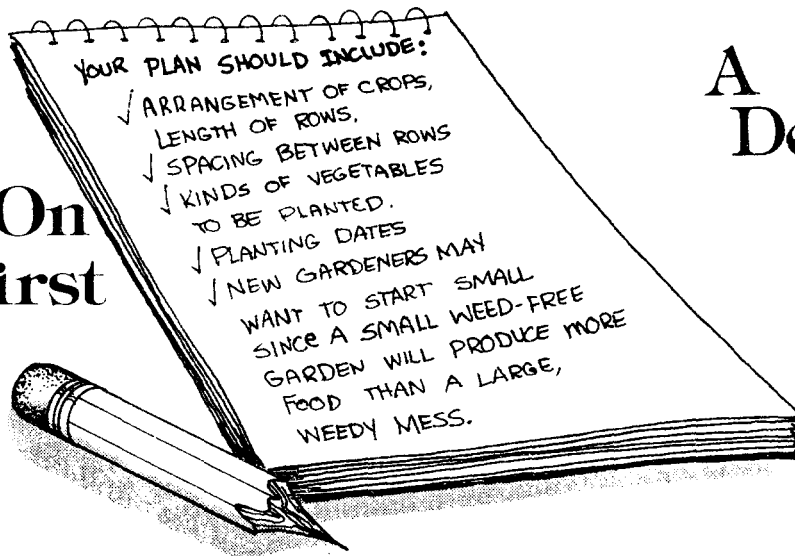 YOUR PLAN SHOULD INCLUDE:
✓ ARRANGEMENT OF CROPS,
LENGTH OF ROWS.
✓ SPACING BETWEEN ROWS
✓ KINDS OF VEGETABLES
TO BE PLANTED.
✓ PLANTING DATES
✓ NEW GARDENERS MAY
WANT TO START SMALL
SINCE A SMALL WEED-FREE
GARDEN WILL PRODUCE MORE
FOOD THAN A LARGE,
WEEDY MESS.
On
A